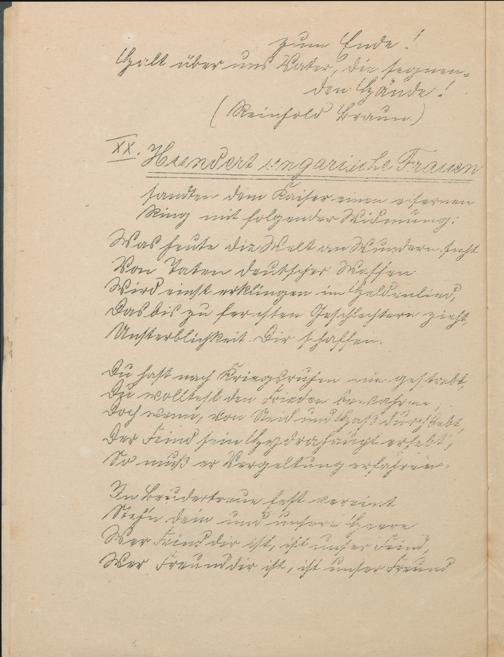 zum Ende!
Halt über uns Vater, die segnen-
den Hände!
(Reinhold Braun)
XX. Hundert ungarische Frauen
sandten dem Kaiser einen eisernen
Ring mit folgender Widmung:
Was heute die Welt an Wundern sieht
Von Taten deutscher Waffen
Wird einst erklingen im Heldenlied,
Das bis zu fernsten Geschlechtern zieht,
Unsterblichkeit Dir schaffen.
Du hast nach Kriegsruhm nie gestrebt,
Du wolltest den Frieden bewahren,
Doch wenn, von Neid und Haß durchbebt,
Der Feind sein Hydrahaupt erhebt,
So muß er Vergeltung erfahren.
In Brudertreue fest vereint
Steh'n dein und unsere Heere
Wer Feind dir ist, ist unser Feind,
Wer Freund dir ist, ist unser Freund